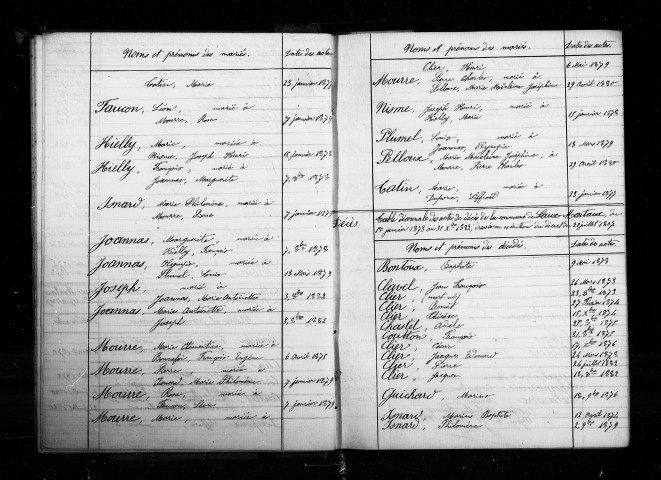 Noms et prénoms des mariés. Dates des actes
Catin, Marie 23 janvier 1877
Faucon, Léon, marié à
Mourre, Rose 7 janvier 1879
Hielly, Marie, mariée à
Nisme, Joseph Henri 15 janvier 1878
Hielly, François, marié à
Joannas, Marguerite 7 1873
Imard, Marie Philomène, mariée à
Mourre, Pierre 7 janvier 1879
Joannas, Marguerite, mariée à
Hielly, François 7 1873
Joannas, mariée à
Plumel, Louis 13 Mars 1879
Joseph, marié à
Joannas, Marie Antoinette 2 1882
Joannas, Marie Antoinette, mariée à
Joseph 2 1882
Mourre, Marie Clémentine, mariée à
Bonnafoi, François Eugène 6 Avril 1875
Mourre, Pierre, marié à
Imard, Marie Philomène 7 janvier 1879
Mourre, Rose, mariée à
Faucon, Léon 7 janvier 1879
Mourre, Marie, mariée à
Noms et prénoms des mariés. Dates des actes
Clier, Henri 6 Mai 1879
Mourre, Pierre Charles, marié à
Pelloux, Marie Madeleine Joséphine 29 Avril 1880
Nisme, Joseph Henri, marié à
Hielly, Marie 15 janvier 1878
Plumel, Louis, marié à
Joannas, 13 Mars 1879
Pelloux, Marie Madeleine Joséphine, à
Mourre, Pierre Charles 29 Avril 1880
Catin, Marie, mariée à
23 janvier 1877
Décès.
Table décennale des actes de décès de la commune de du
1er janvier 1873 au 31 Xbre 1882, dressée en exécution du décret du 20 juillet 1807
Noms et prénoms des décédés. Dates des actes
Bontoux, Baptiste 9 Mai 1873
Clavel, Jean François 26 Mars 1873
Clier, (mort-né) 23 1873
Clier, 27 Février 1874
Clier, Thérèse 15 Xbre 1874
Chastel, 25 1875
Coutton, François 31 1875
Clier, César 17 Xbre 1876
Clier, Jacques Edouard 26 Mars 1878
Clier, Pierre 24 juillet 1882
Clier, Jacques 13 1882
Guichard, Marino 18 9bre 1876
Imard, Marius Baptiste 12 Avril 1874
Imard, Philomène 2 9bre 1879